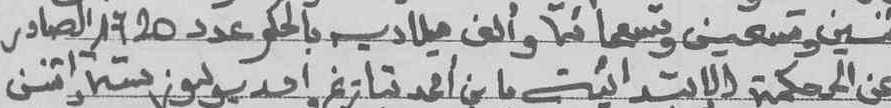 اثنين وتسعين وتسعمائة وألف ميلادية بالحكم عدد 1720 الصادر
من المحكمة الابتدائية بابن أحمد بتاريخ احد يوليوز سنة اثنين